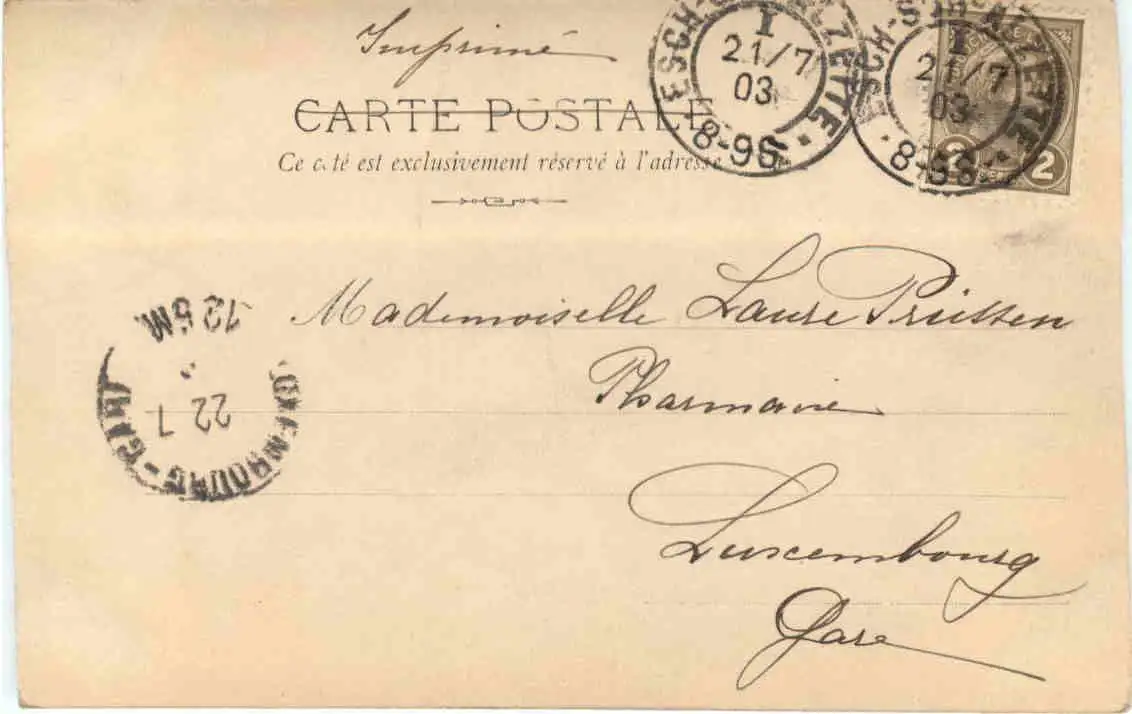 Imprimé
CARTE POSTALE
Ce côté est exclusivement réservé à l'adresse
ESCH-S-ALZETTE
I
21/7
03
8-9S
ESCH-S-ALZETTE
I
21/7
03
8-9S
2 2
Mademoiselle Laure Prüssen
Pharmacie
Luxembourg
Gare
LUXEMBOURG-GARE
22 7
12 5 M.